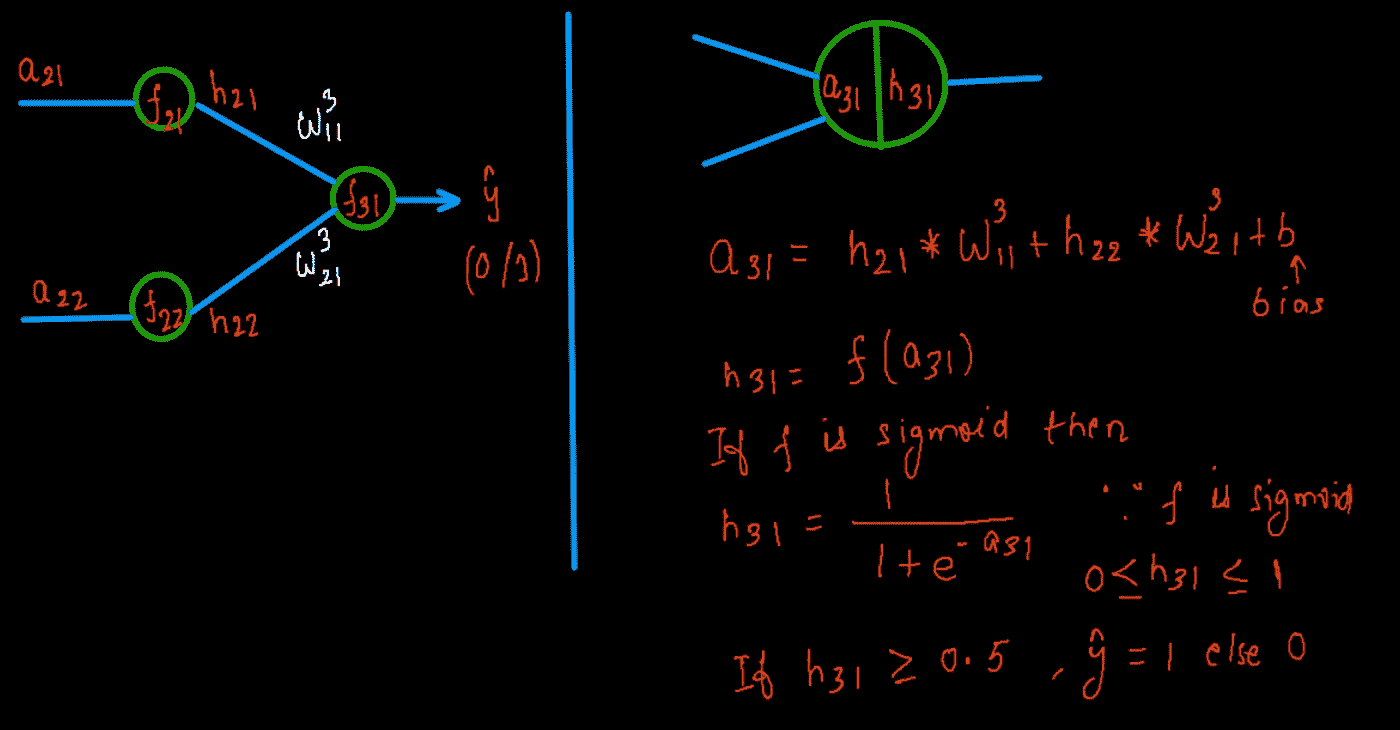 a21
f21
h21
w³11
f31
ŷ
(0/1)
w³21
a22
f22
h22
a31 | h31
a31 = h21 * w³11 + h22 * w³21 + b
↑
bias
h31 = f(a31)
If f is sigmoid then
h31 = 1 / (1 + e^-a31)
∵ f is sigmoid
0 ≤ h31 ≤ 1
If h31 ≥ 0.5, ŷ = 1 else 0